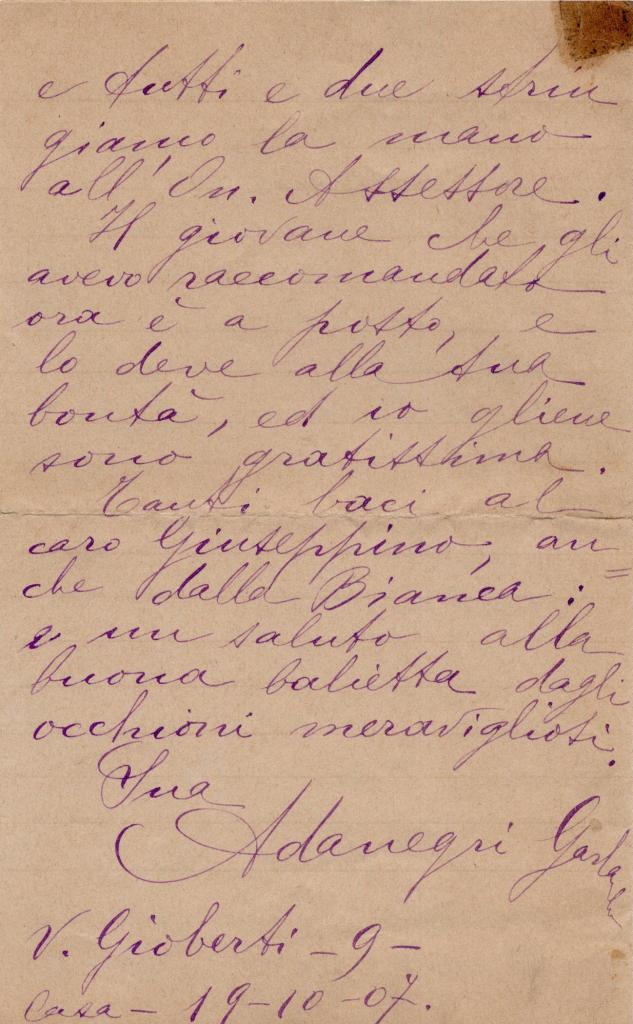 e tutti e due strin
giamo la mano
all'On. Assessore.
Il giovane che gli
avevo raccomandato
ora è a posto, e
lo deve alla sua
bontà, ed io gliene
sono gratissima.
Tanti baci al
caro Giuseppino, an=
che dalla Bianca:
e un saluto alla
buona balietta dagli
occhioni meravigliosi.
Sua
Adanegri Garlanda
V. Gioberti - 9 -
Casa - 19-10-07.